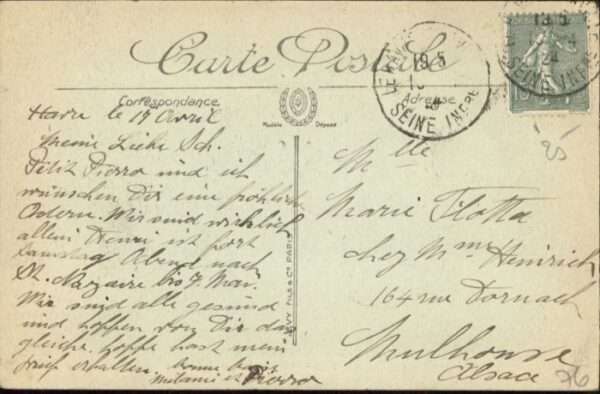 Carte Postale
Correspondance
Adresse
Modèle Déposé
LE HAVRE
19 5
SEINE INFRE
19 5
24
SEINE INFRE
Havre le 19 Avril
Meine Liebe Sch.
Petit Pierro und ich
wünschen Dir eine fröhliche
Ostern. Wir sind wirklich
allein Henri ist fort
samstag Abend nach
St. Nazaire bis 7 Mai.
Wir sind alle gesund
und hoffen von Dir das
gleiche. hoffe hast mein
brief erhalten. bonne
et Pierro
LEVY FILS & Cie PARIS
Mlle
Marie Flotta
chez Mme Heinrich
164 rue Dornach
Mulhouse
Alsace
25
76